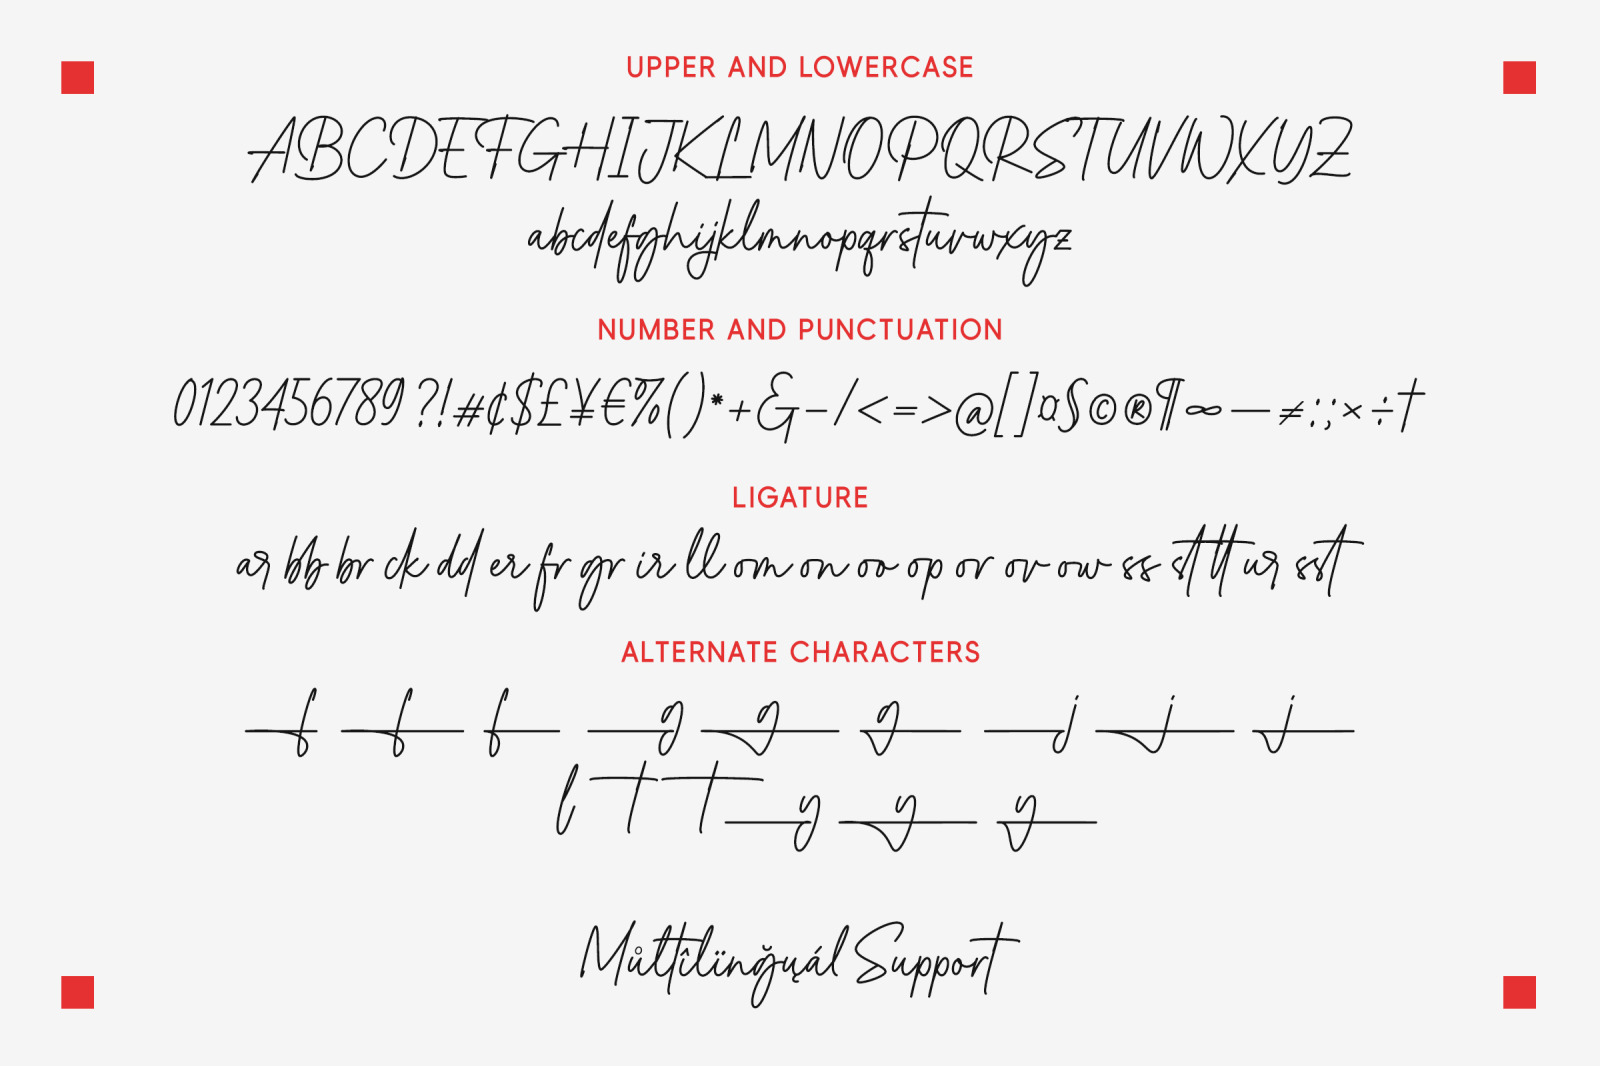 UPPER AND LOWERCASE
ABCDEFGHIJKLMNOPQRSTUVWXYZ
abcdefghijklmnopqrstuvwxyz
NUMBER AND PUNCTUATION
0123456789?!#¢$£¥€%()*+&–/<=>@[]¤§©®¶∞—≠:;×÷†
LIGATURE
ar bb br ck dd er fr gr ir ll om on oo op or ov ow ss st tt ur sst
ALTERNATE CHARACTERS
f f f g g g j j j
l t t y y y
Můltîlïnğųál Support